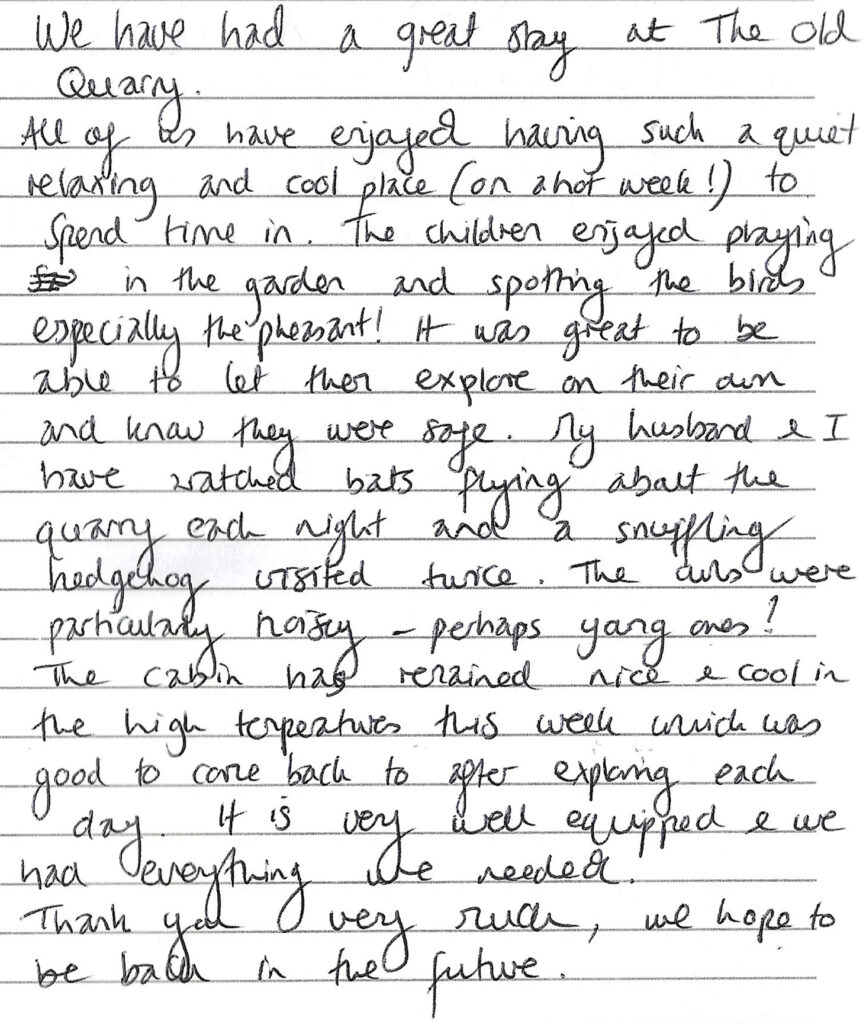 We have had a great stay at The Old
Quarry.
All of us have enjoyed having such a quiet
relaxing and cool place (on a hot week!) to
spend time in. The children enjoyed playing
in the garden and spotting the birds
especially the pheasant! It was great to be
able to let them explore on their own
and know they were safe. My husband & I
have watched bats flying about the
quarry each night and a snuffling
hedgehog visited twice. The owls were
particularly noisy – perhaps young ones!
The cabin has remained nice & cool in
the high temperatures this week which was
good to come back to after exploring each
day. It is very well equipped & we
had everything we needed.
Thank you very much, we hope to
be back in the future.